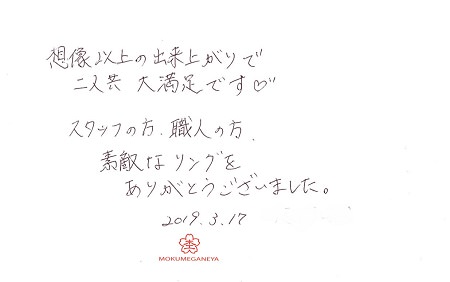 想像以上の出来上がりで
二人共 大満足です♡
スタッフの方、職人の方、
素敵なリングを
ありがとうございました。
2019.3.17
MOKUMEGANEYA